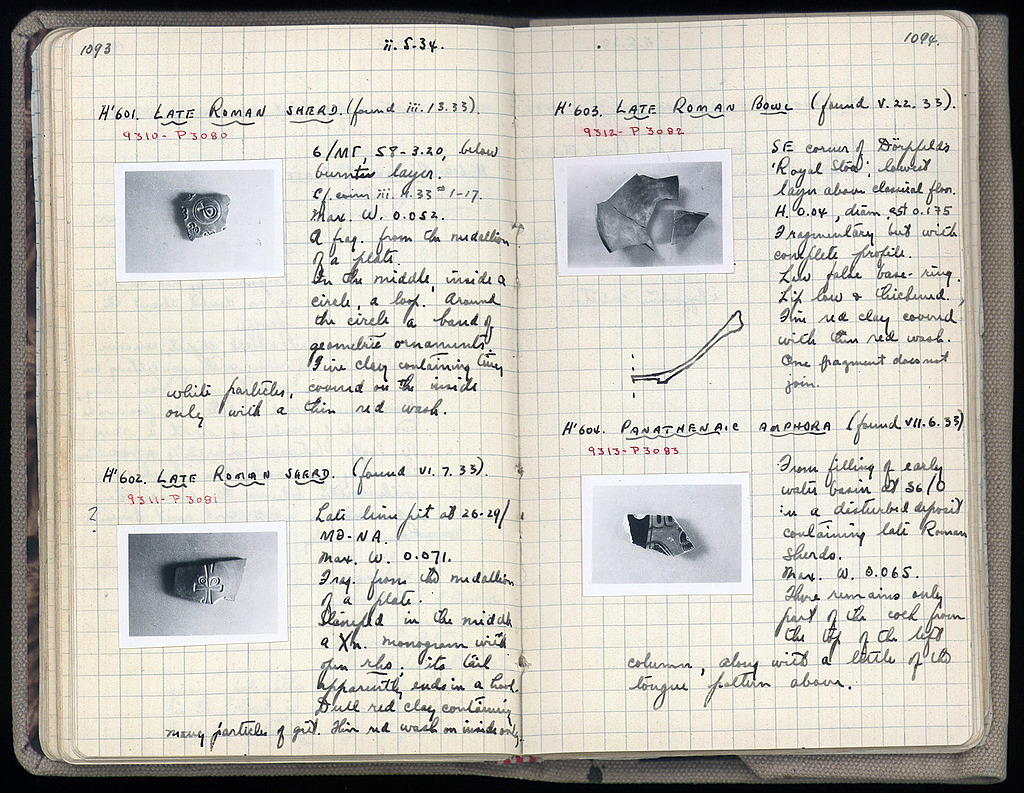 1093
ii.5.34.
H'601. LATE ROMAN SHERD. (found iii.13.33).
9310- P 3080
6/MT, 59-3.20, below
burnt layer.
Cf. coins iii. 4.33 # 1-17.
Max. W. 0.052.
A frag. from the medallion
of a plate.
In the middle, inside a
circle, a loop. Around
the circle a band of
geometric ornaments.
Fine clay containing tiny
white particles, covered on the inside
only with a thin red wash.
H'602. LATE ROMAN SHERD. (found VI.7.33).
9311- P 3081
?
Late lime pit at 26-29/
MB-NA.
Max. W. 0.071.
Frag. from the medallion
of a plate.
Stamped in the middle
a Xn. monogram with
open rho; its tail
apparently ends in a hook.
Dull red clay containing
many particles of grit. Thin red wash on inside only.
1094.
H'603. LATE ROMAN BOWL (found V.22.33).
9312- P 3082
SE corner of Dörpfeld's
'Royal Stoa', lowest
layer above classical floor.
H. 0.04, diam. est 0.175
Fragmentary but with
complete profile.
Low false base-ring.
Lip low & thickened.
Fine red clay covered
with thin red wash.
One fragment does not
join.
H'604. PANATHENAIC AMPHORA (found VII.6.33)
9313- P 3083
From filling of early
water basin at 36/O
in a disturbed deposit
containing late Roman
sherds.
Max. W. 0.065.
There remains only
part of the cock from
the top of the left
column, along with a little of the
tongue pattern above.